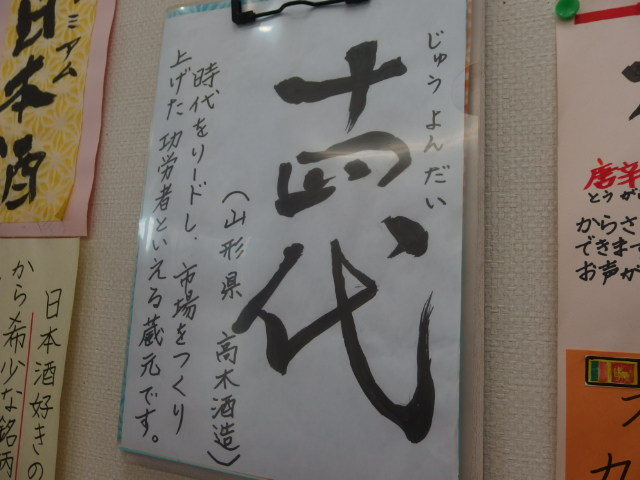 ミアム
日本酒
日本酒好きの
から希少な銘柄
じゅうよんだい
十四代
(山形県 高木酒造)
時代をリードし、市場をつくり
上げた功労者といえる蔵元です。
とうが
からさ
できま
お声が